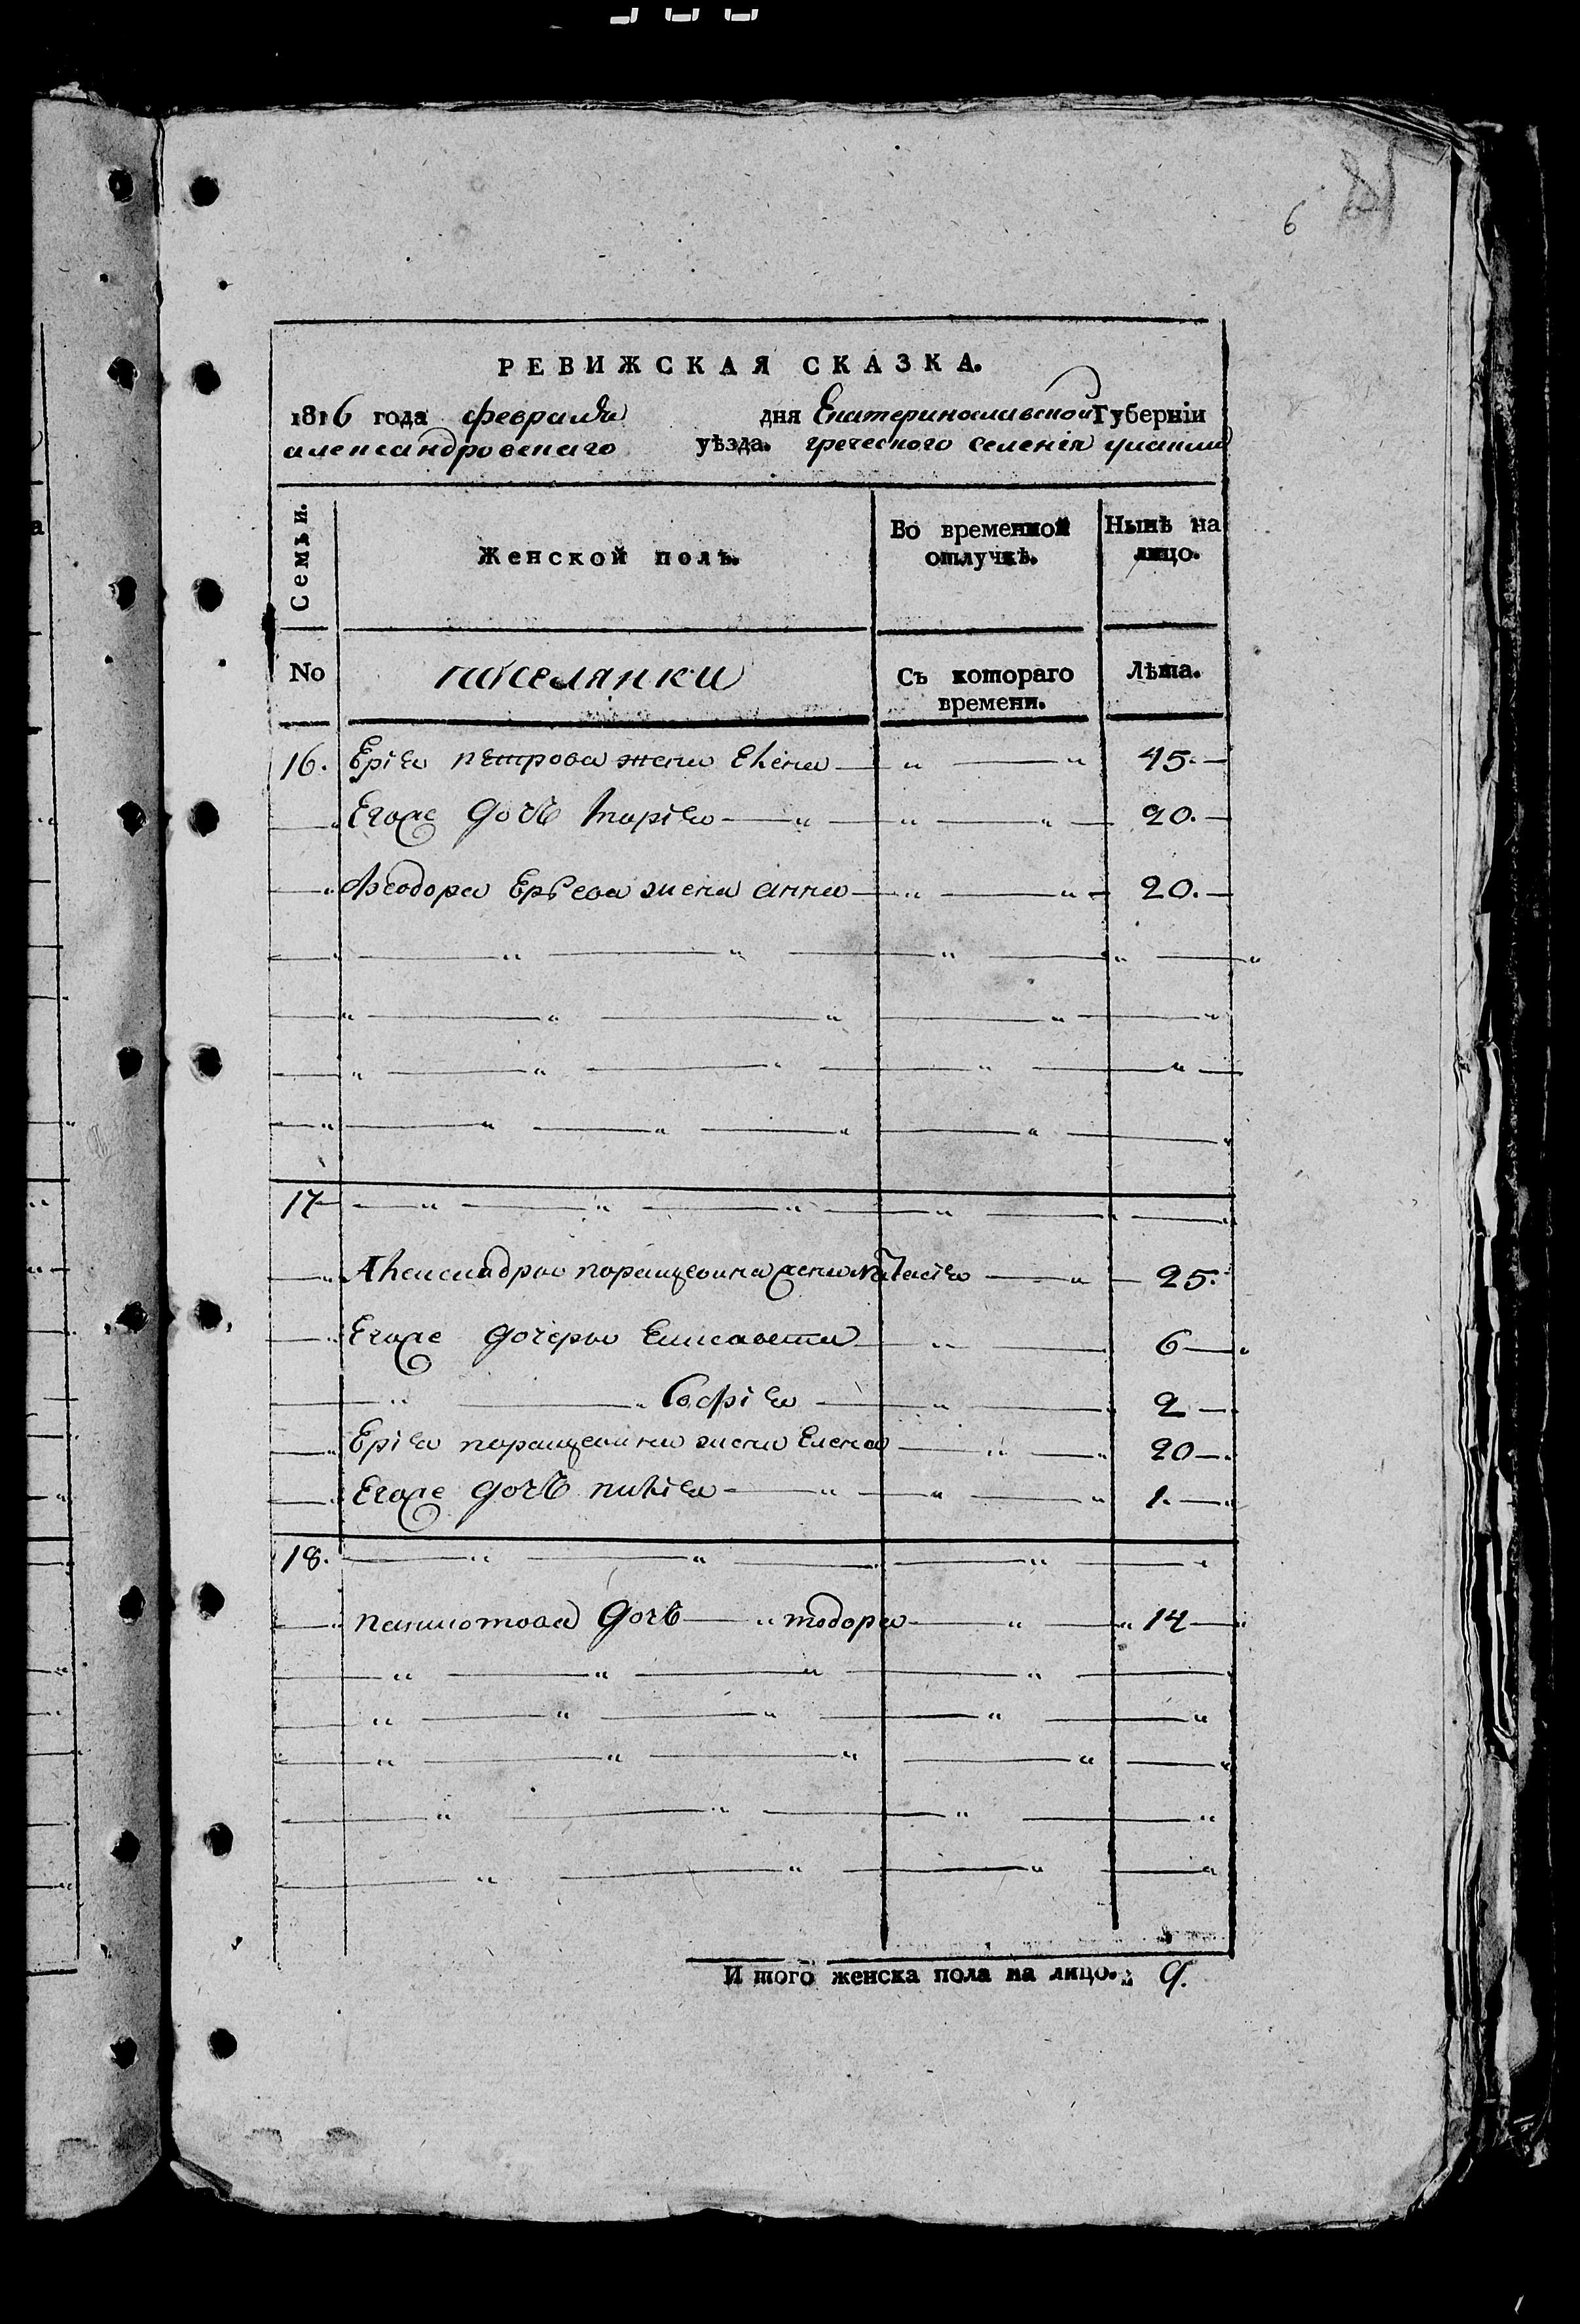 6
РЕВИЖСКАЯ СКАЗКА.
1816 года февраля дня Екатеринославской Губерніи
александровскаго уѣзда. греческого селенія
Семьи. Женской полъ. Во временной отлучкѣ. Нынѣ на лицо.
No поселянки Съ котораго времени. Лѣта.
16. Ерія петрова жена Елена 45.
Егоже дочь марія 20.
феодора Ерѣева жена анна 20.
17
Александра жена 25.
Егоже дочери Елисавета 6
Софія 2
Ерія жена Елена 20
Егоже дочь 1.
18.
панаиотова дочь тодора 14
И того женска пола на лицо. 9.